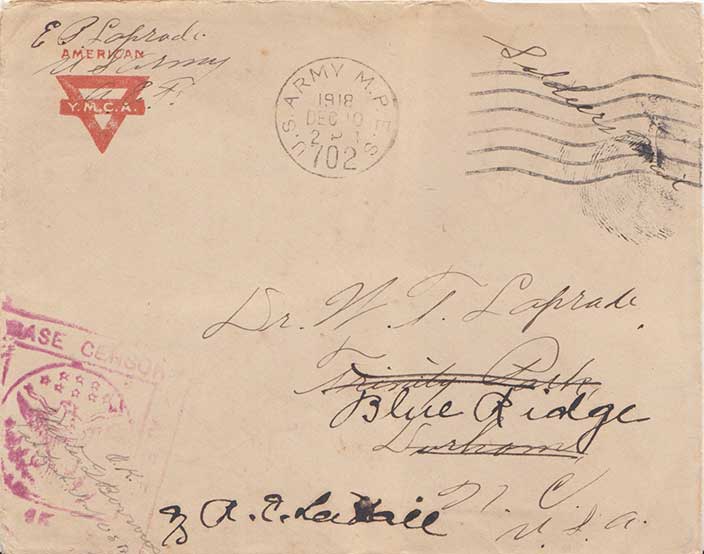 E P Laprade
AMERICAN
U.S. Army
A.E.F.
Y.M.C.A.
U.S. ARMY M.P.E.S.
1918
DEC 10
2 P
702
Soldiers Mail
Dr. W. T. Laprade
Trinity Park,
Blue Ridge
Durham,
N. C.
U. S. A.
BASE CENSOR
O.K.